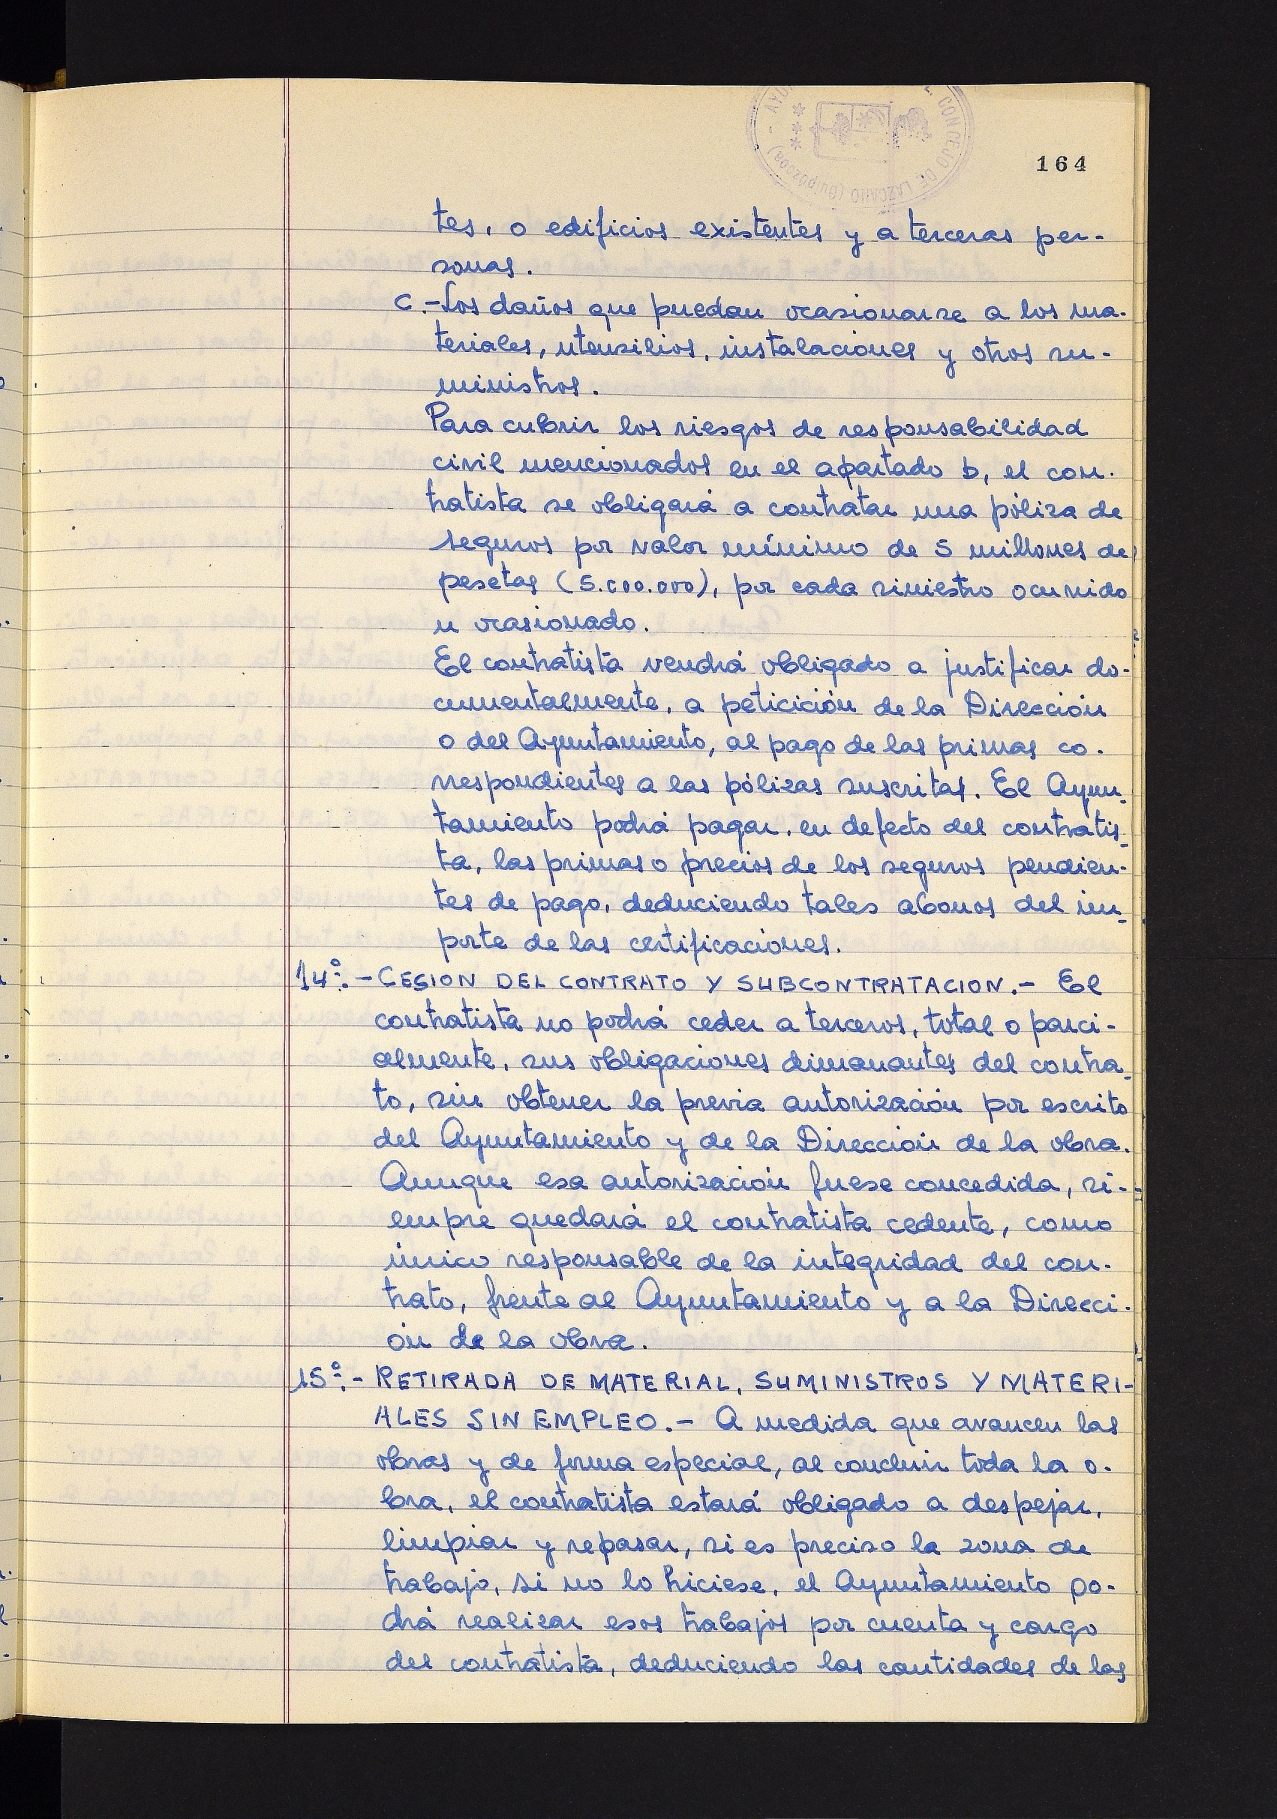 CONCEJO DE LAZCANO (Guipúzcoa)
164
tes, o edificios existentes y a terceras per-
sonas.
c.- Los daños que puedan ocasionarse a los ma-
teriales, utensilios, instalaciones y otros su-
ministros.
Para cubrir los riesgos de responsabilidad
civil mencionados en el apartado b, el con-
tratista se obligará a contratar una póliza de
seguros por valor mínimo de 5 millones de
pesetas (5.000.000), por cada siniestro ocurrido
u ocasionado.
El contratista vendrá obligado a justificar do-
cumentalmente, a peticición de la Dirección
o del Ayuntamiento, al pago de las primas co-
rrespondientes a las pólizas suscritas. El Ayun-
tamiento podrá pagar, en defecto del contratis-
ta, las primas o precios de los seguros pendien-
tes de pago, deduciendo tales abonos del im-
porte de las certificaciones.
14º.- CESION DEL CONTRATO Y SUBCONTRATACION.- El
contratista no podrá ceder a terceros, total o parci-
almente, sus obligaciones dimanantes del contra-
to, sin obtener la previa autorización por escrito
del Ayuntamiento y de la Dirección de la obra.
Aunque esa autorización fuese concedida, si-
empre quedará el contratista cedente, como
único responsable de la integridad del con-
trato, frente al Ayuntamiento y a la Direcci-
ón de la obra.
15º.- RETIRADA DE MATERIAL, SUMINISTROS Y MATERI-
ALES SIN EMPLEO.- A medida que avancen las
obras y de forma especial, al concluir toda la o-
bra, el contratista estará obligado a despejar,
limpiar y repasar, si es preciso la zona de
trabajo, si no lo hiciese, el Ayuntamiento po-
drá realizar esos trabajos por cuenta y cargo
del contratista, deduciendo las cantidades de las